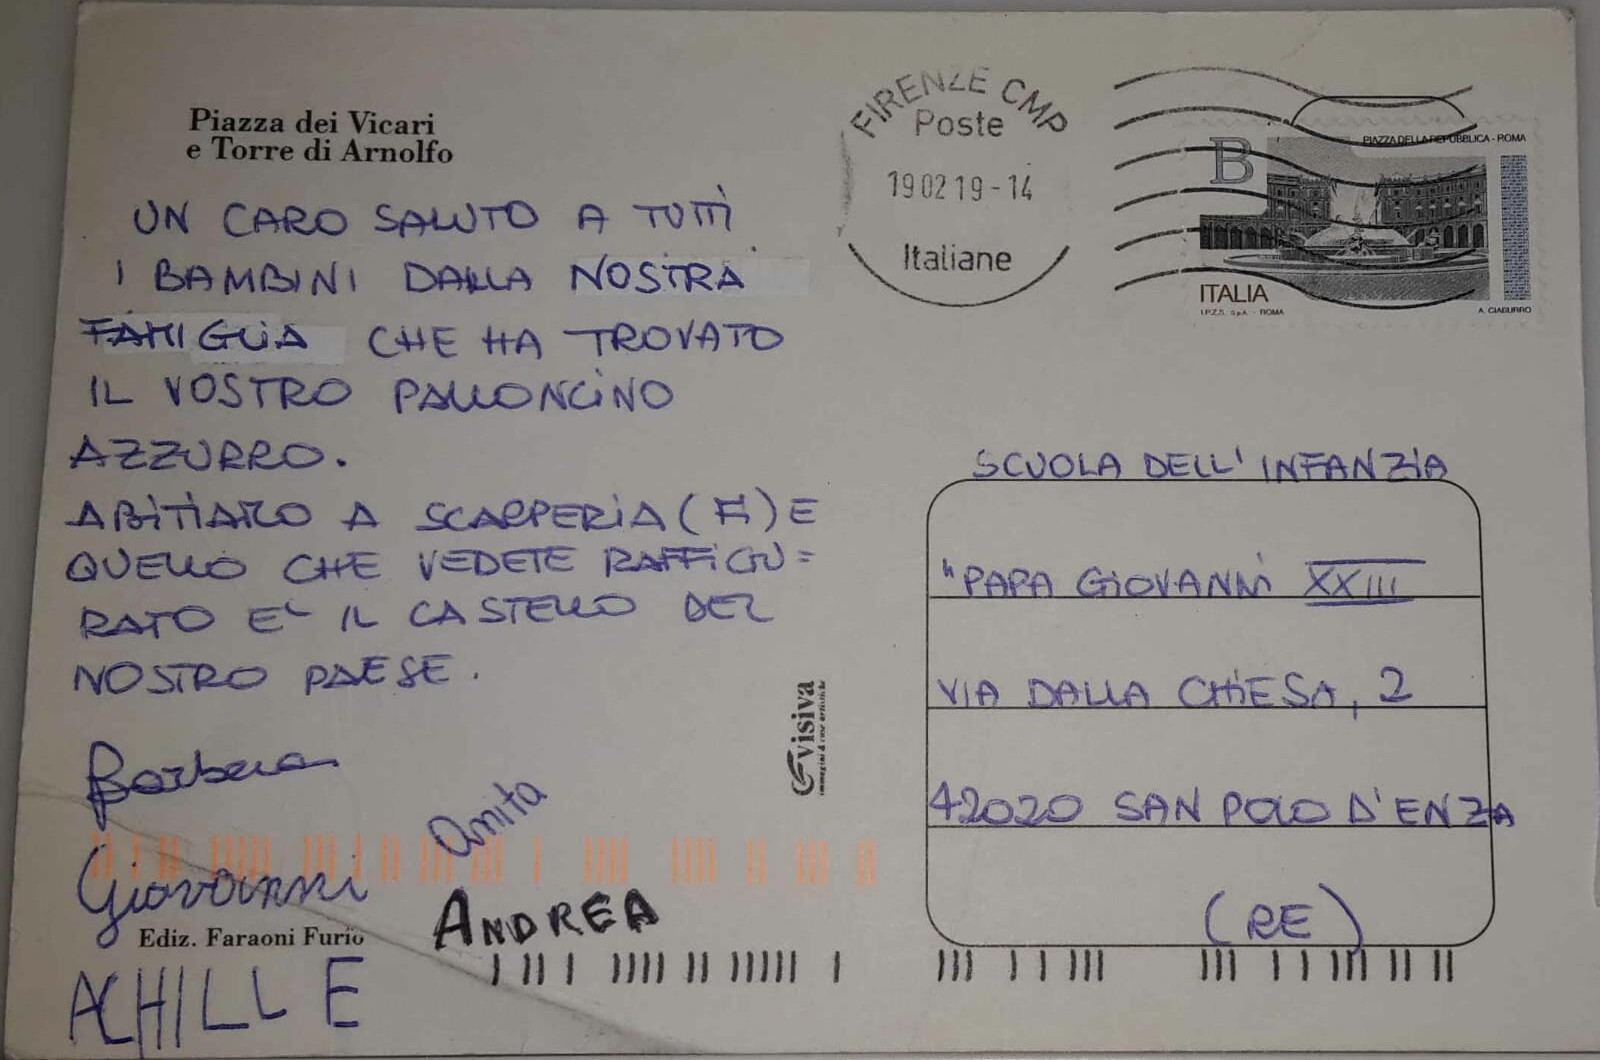 Piazza dei Vicari
e Torre di Arnolfo
UN CARO SALUTO A TUTTI
I BAMBINI DALLA NOSTRA
FAMIGLIA CHE HA TROVATO
IL VOSTRO PALLONCINO
AZZURRO.
ABITIAMO A SCARPERIA (FI) E
QUELLO CHE VEDETE RAFFIGU=
RATO E' IL CASTELLO DEL
NOSTRO PAESE.
Barbara
Anita
Giovanni
ANDREA
Ediz. Faraoni Furio
ACHILLE
visiva
immagini & cose artistiche
FIRENZE CMP
Poste
19 02 19 - 14
Italiane
B
PIAZZA DELLA REPUBBLICA - ROMA
ITALIA
I.P.Z.S. S.p.A. - ROMA
A. CIABURRO
SCUOLA DELL'INFANZIA
"PAPA GIOVANNI XXIII
VIA DALLA CHIESA, 2
42020 SAN POLO D'ENZA
(RE)